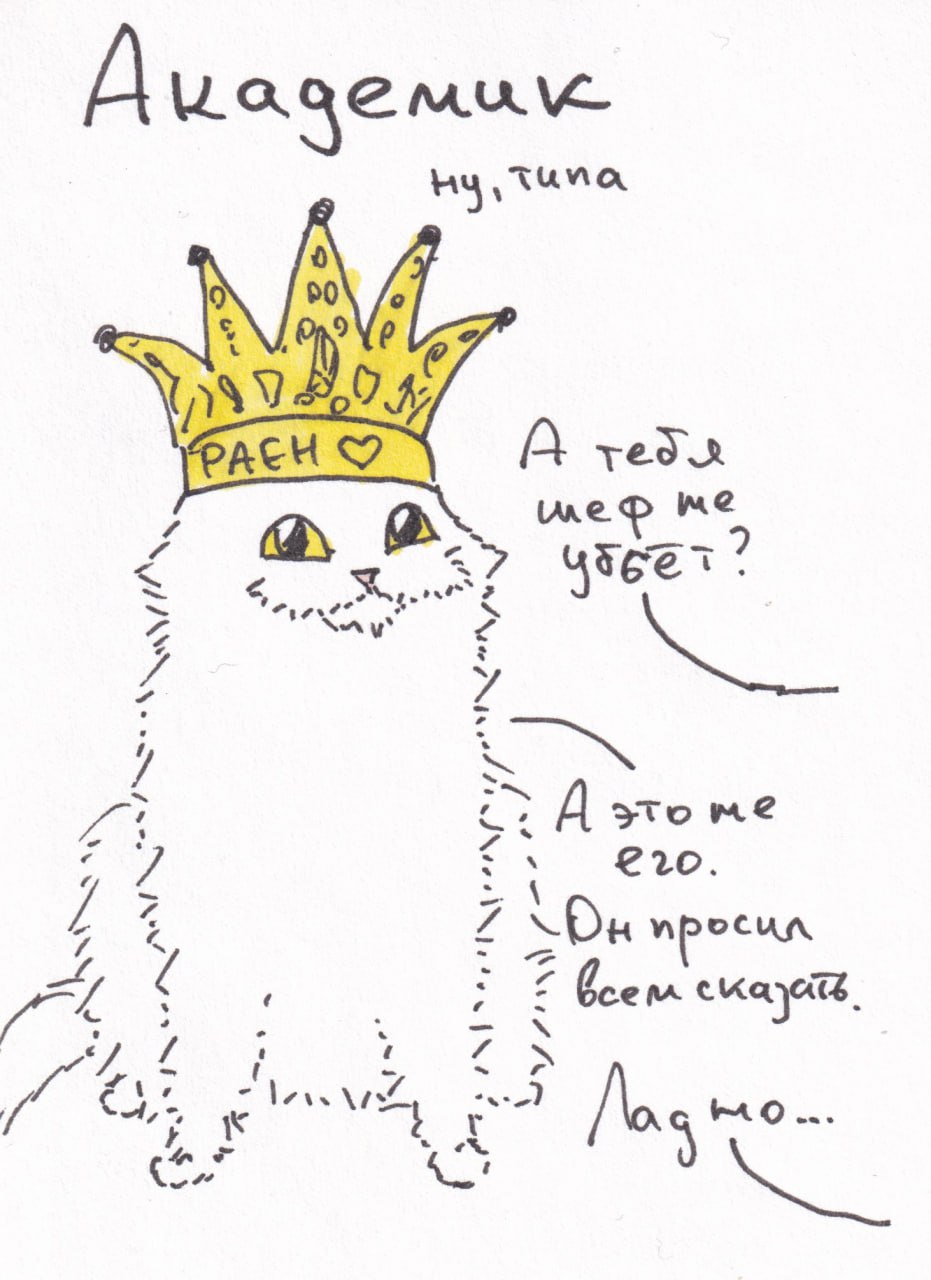 Академик
ну, типа
РАЕН ♡
А тебя
шеф же
убьёт?
А это же
его.
Он просил
всем сказать.
Ладно...